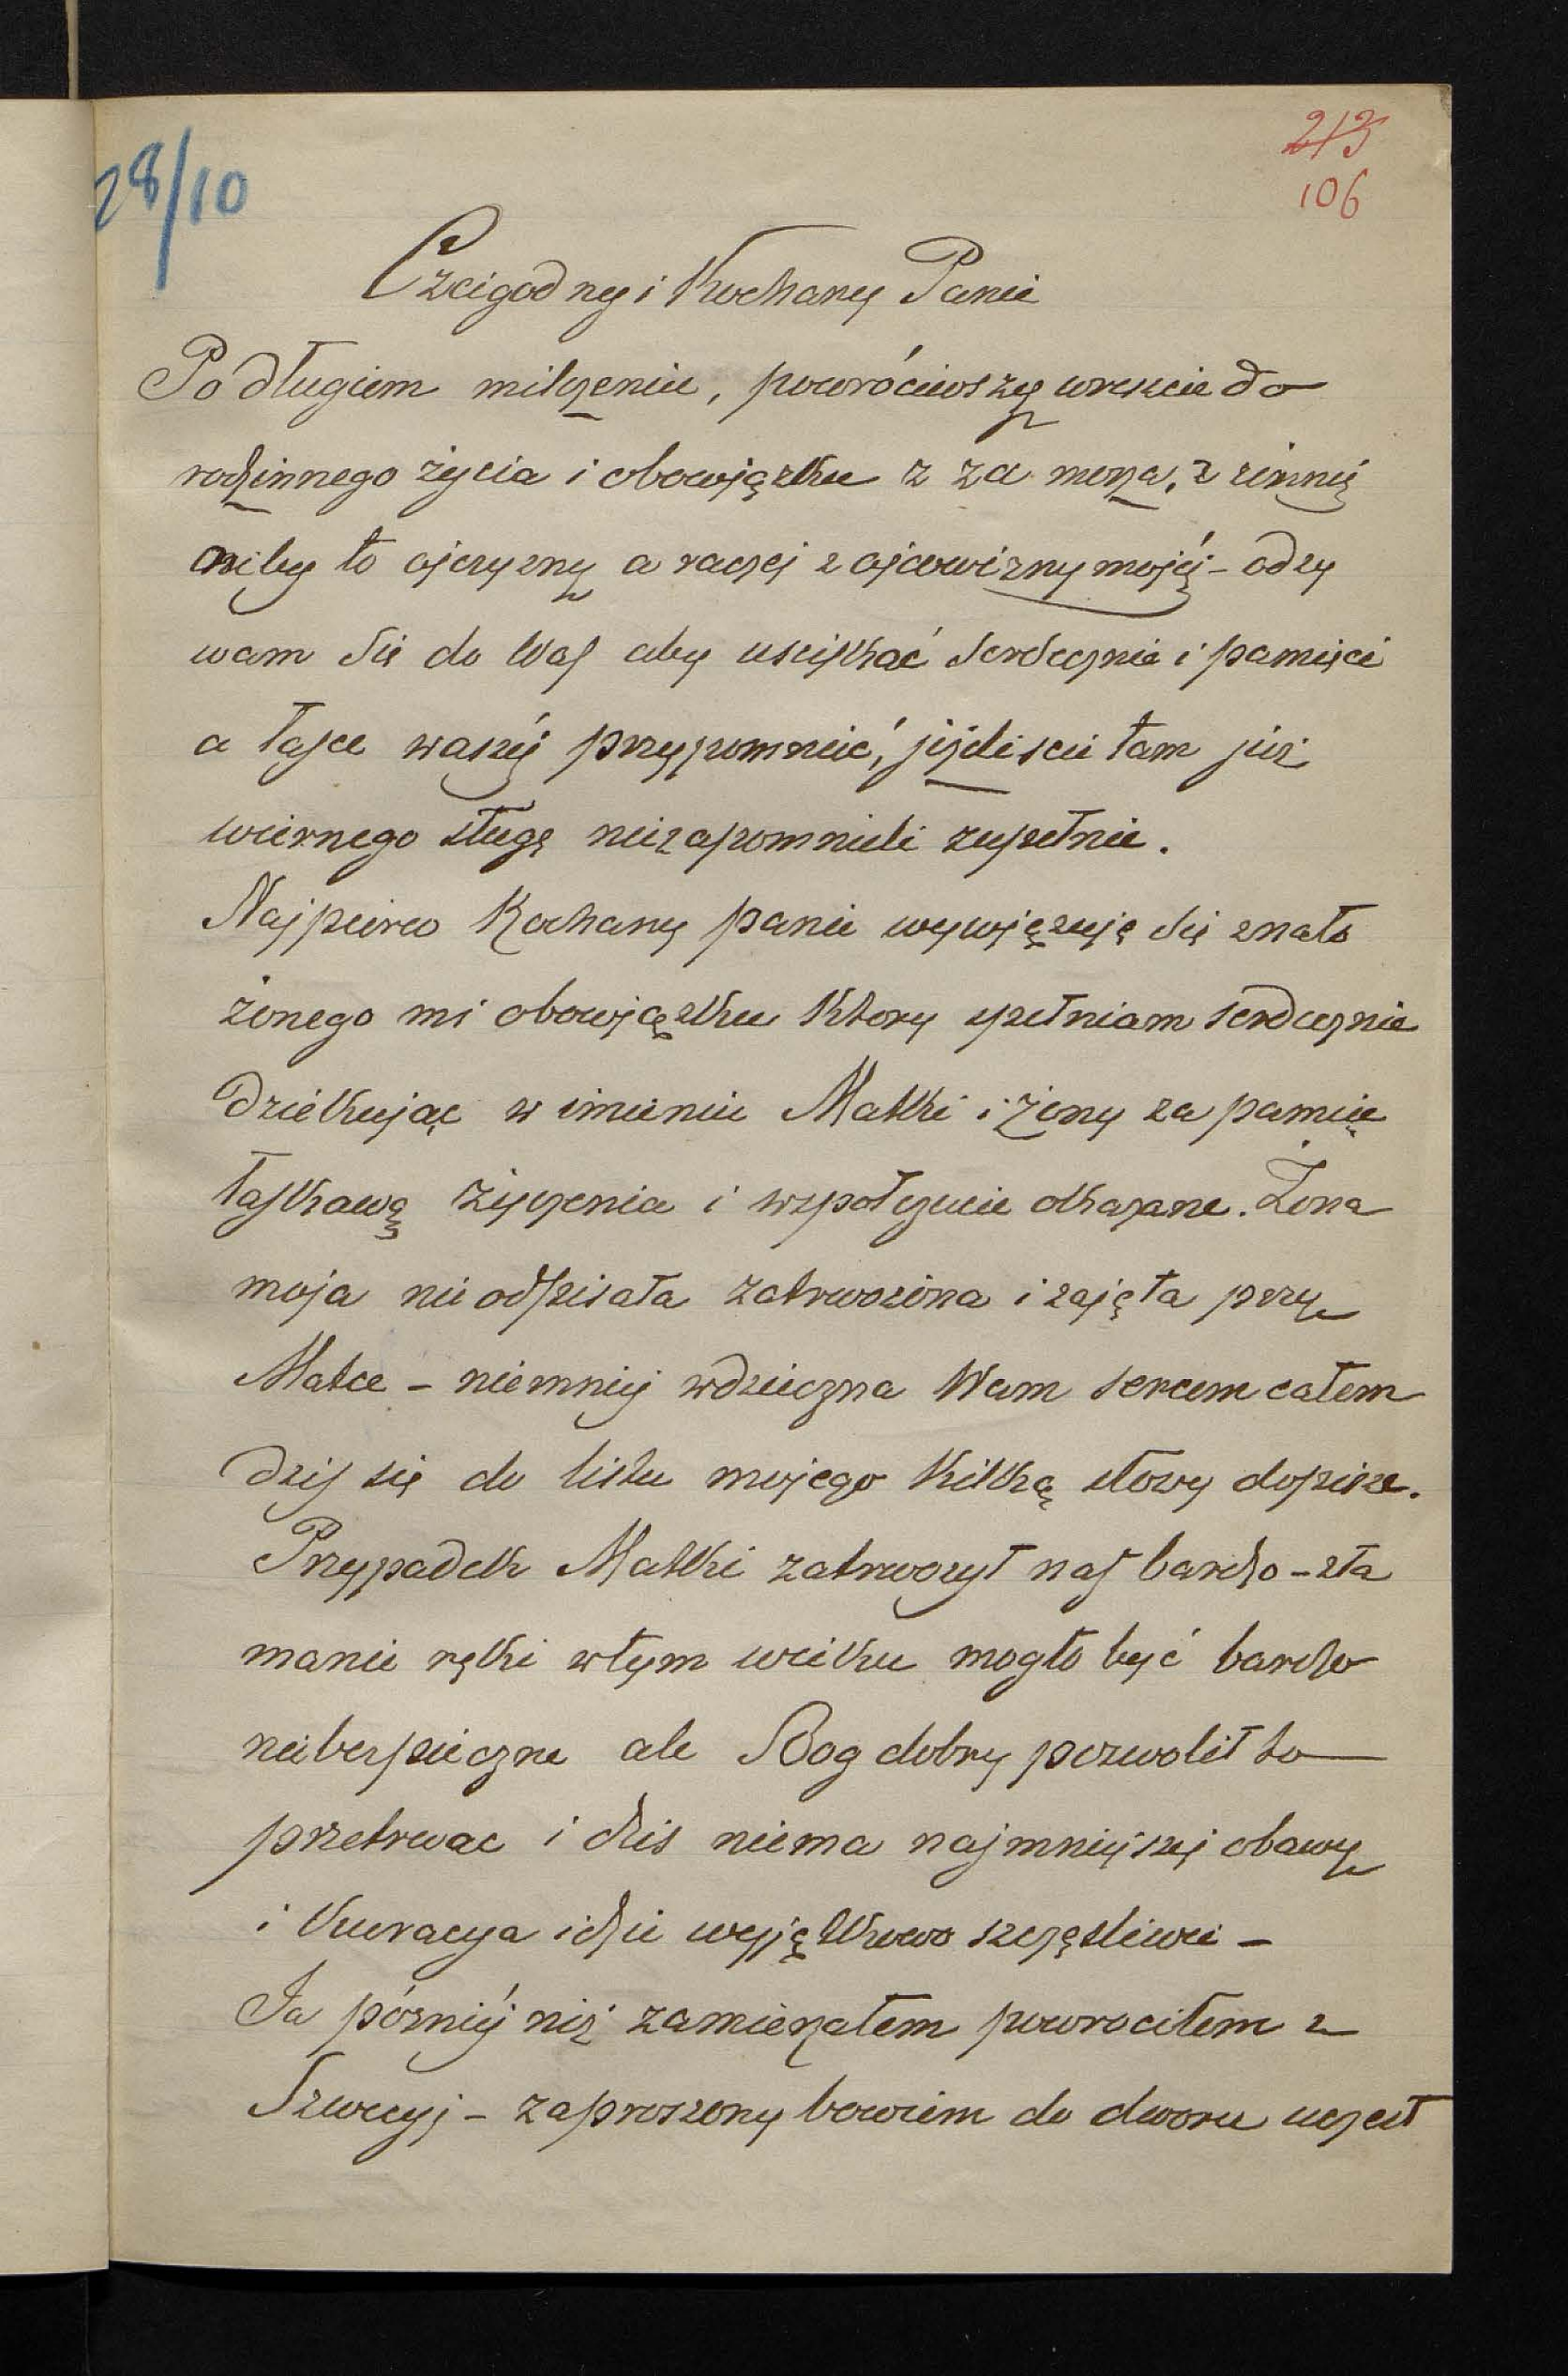 28/10
213
106
Czcigodny i Kochany Panie
Po długiem milczeniu, powróciwszy wreszcie do
rodzinnego życia i obowiązku z za morza, z zimnéj
niby to ojczyzny a raczej z ojcowizny mojéj - odzy
wam się do Was aby uściskać serdecznie i pamięci
a łasce waszéj przypomnieć, jeżeliscie tam już
wiernego sługę niezapomnieli zupełnie.
Najpierw Kochany panie wywięzuję się znało
żonego mi obowiązku ktory spełniam serdecznie
dziękując w imieniu Matki i żony za pamięć
łaskawą życzenia i wspołczucie okazane. Żona
moja nie odpisała zatrwożona i zajęta przy
Matce - niemniej wdzięczna Wam sercem całem
dziś się do listu mojego kilką słowy dopisze.
Przypadek Matki zatrwożył nas bardzo - zła
manie ręki w tym wieku mogło być bardzo
niebezpieczne ale Bog dobry pozwolił to
przetrwac i dzis niema najmniejszej obawy
i kuracya idzie wyjątkowo szczęsliwie -
Ja pózniéj niż zamierzałem powrociłem z
Szwecyi - zaproszony bowiem do dworu uczest